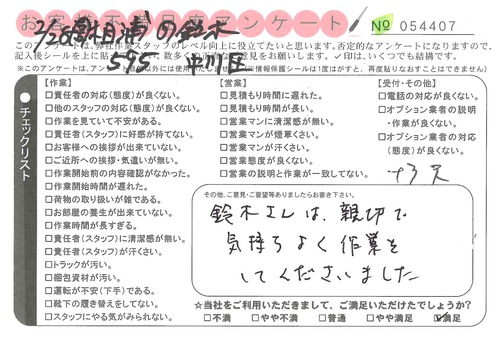 お客様不満足度アンケート
№ 054407
このアンケートは、弊社作業スタッフのレベル向上に役立てたいと思います。否定的なアンケートになりますので、
記入後シールを上に貼
をお願いします。✓印は、いくつでも結構です。
2/28
の鈴木
595 中川区
●チェックリスト
【作業】
□責任者の対応(態度)が良くない。
□他のスタッフの対応(態度)が良くない。
□作業を見ていて不安がある。
□責任者(スタッフ)に好感が持てない。
□お客様への挨拶が出来ていない。
□ご近所への挨拶・気遣いが無い。
□作業開始前の内容確認がなかった。
□作業開始時間が遅れた。
□荷物の取り扱いが雑である。
□お部屋の養生が出来ていない。
□作業時間が長すぎる。
□責任者(スタッフ)に清潔感が無い。
□責任者(スタッフ)が汗くさい。
□トラックが汚い。
□梱包資材が汚い。
□運転が不安(下手)である。
□靴下の履き替えをしてない。
□スタッフにやる気がみられない。
【営業】
□見積もり時間に遅れた。
□見積もり時間が長い。
□営業マンに清潔感が無い。
□営業マンが煙草くさい。
□営業マンが汗くさい。
□営業態度が良くない。
□営業の説明と作業が一致してない。
【受付・その他】
□電話の対応が良くない。
□オプション業者の説明
・作業が良くない。
□オプション業者の対応
(態度)が良くない。
その他、ご意見・ご要望等ありましたらお書き下さい。
鈴木さんは、親切で
気持ちよく作業を
してくださいました
☆当社をご利用いただきまして、ご満足いただけたでしょうか?
□不満 □やや不満 □普通 □やや満足 ☑満足